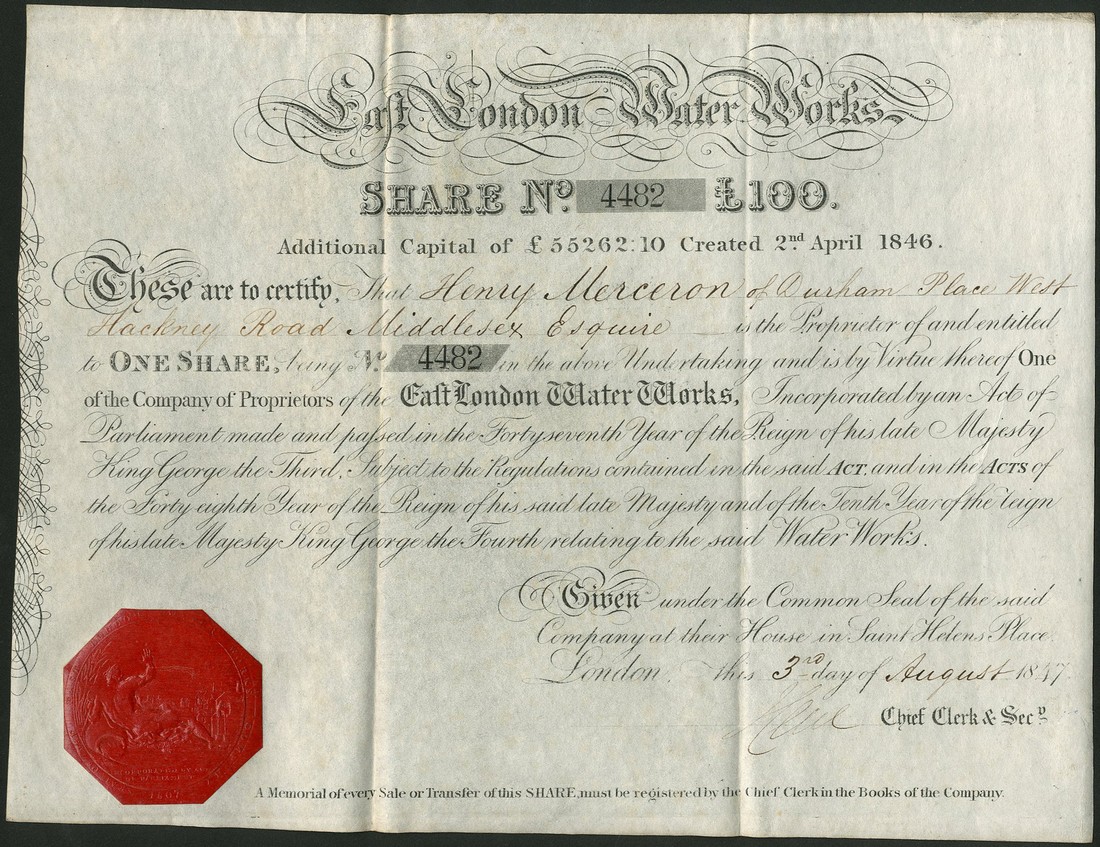 East London Water Works
SHARE No. 4482 £100.
Additional Capital of £55262:10 Created 2nd April 1846.
These are to certify, That Henry Merceron of Durham Place West
Hackney Road Middlesex Esquire is the Proprietor of and entitled
to ONE SHARE, being No. 4482 in the above Undertaking and is by Virtue thereof One
of the Company of Proprietors of the East London Water Works, Incorporated by an Act of
Parliament made and passed in the Forty seventh Year of the Reign of his late Majesty
King George the Third, Subject to the Regulations contained in the said ACT, and in the ACTS of
the Forty eighth Year of the Reign of his said late Majesty and of the Tenth Year of the reign
of his late Majesty King George the Fourth, relating to the said Water Works.
Given under the Common Seal of the said
Company at their House in Saint Helens Place
London, this 3rd day of August 1847
Chief Clerk & Secy.
INCORPORATED BY ACT
OF PARLIAMENT
1807
A Memorial of every Sale or Transfer of this SHARE, must be registered by the Chief Clerk in the Books of the Company.